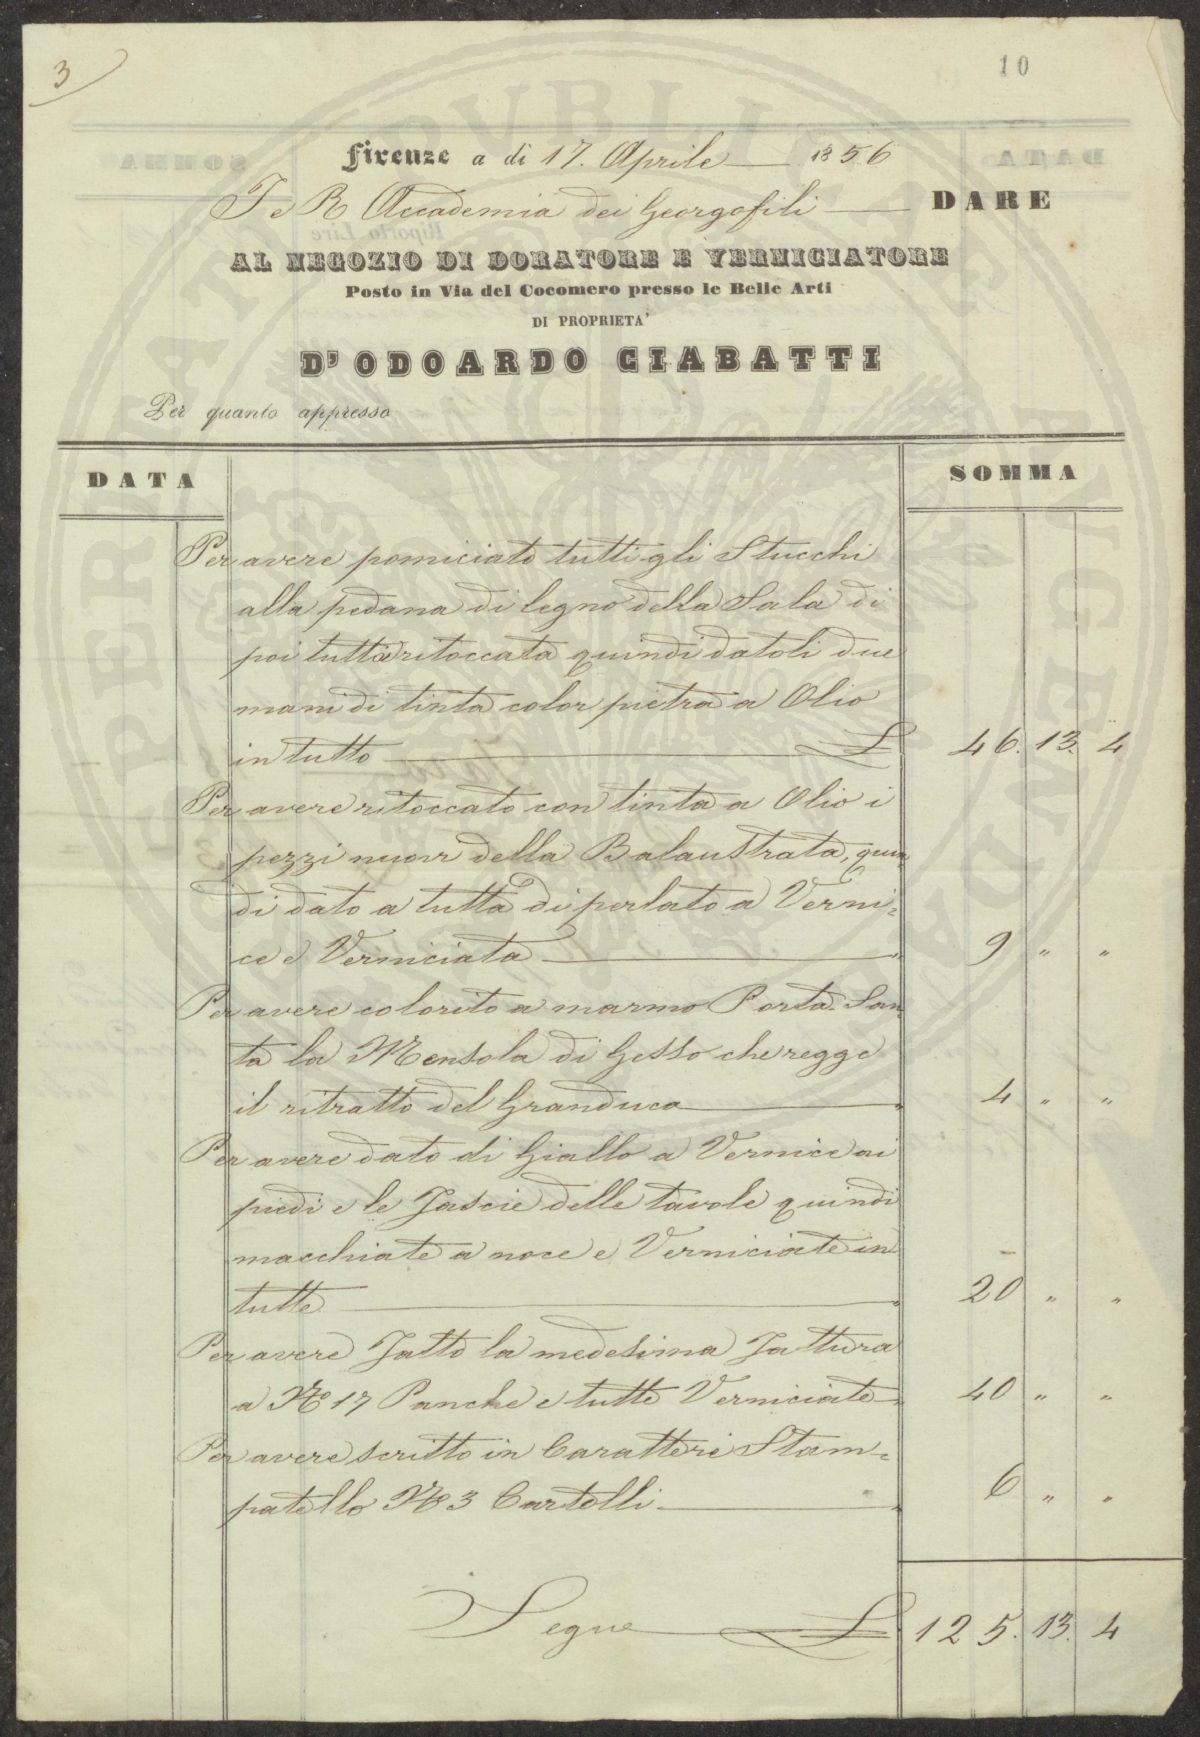 3
10
Firenze a di 17. Aprile 1856
I e R Accademia dei Georgofili DARE
AL NEGOZIO DI DORATORE E VERNICIATORE
Posto in Via del Cocomero presso le Belle Arti
DI PROPRIETA'
D'ODOARDO CIABATTI
Per quanto appresso
DATA SOMMA
Per avere pomiciato tutti gli Stucchi
alla pedana di legno della Sala di
poi tutta ritoccata quindi datoli due
mani di tinta color pietra a Olio
in tutto £ 46. 13. 4
Per avere ritoccato con tinta a Olio i
pezzi nuovi della Balaustrata, quin
di dato a tutta di perlato a Verni=
ce e Verniciata " 9 " "
Per avere colorito a marmo Porta San
ta la Mensola di Gesso che regge
il ritratto del Granduca " 4 " "
Per avere dato di Giallo a Vernice ai
piedi e le Fascie delle tavole quindi
macchiate a noce e Verniciate in
tutte " 20 " "
Per avere Fatto la medesima Fattura
a No 17 Panche e tutte Verniciate " 40 " "
Per avere scritto in Caratteri Stam=
patello No 3 Cartelli " 6 " "
Segue £ 125. 13. 4